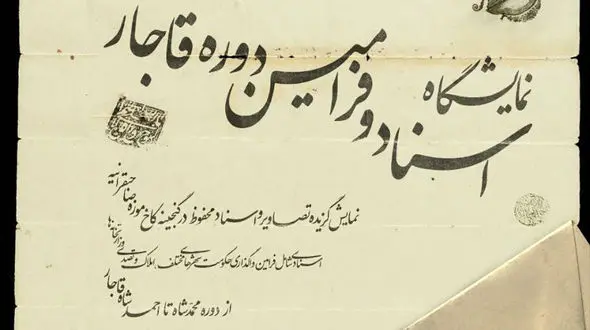 نمایشگاه
اسناد و فرامین دوره قاجار
نمایش گزیده تصاویر و اسناد محفوظ در گنجینه کاخ موزه صاحبقرانیه
اسنادی شامل فرامین واگذاری حکومت شهرهای مختلف، املاک و تصدی وزارتخانه‌ها
از دوره محمدشاه تا احمدشاه قاجار